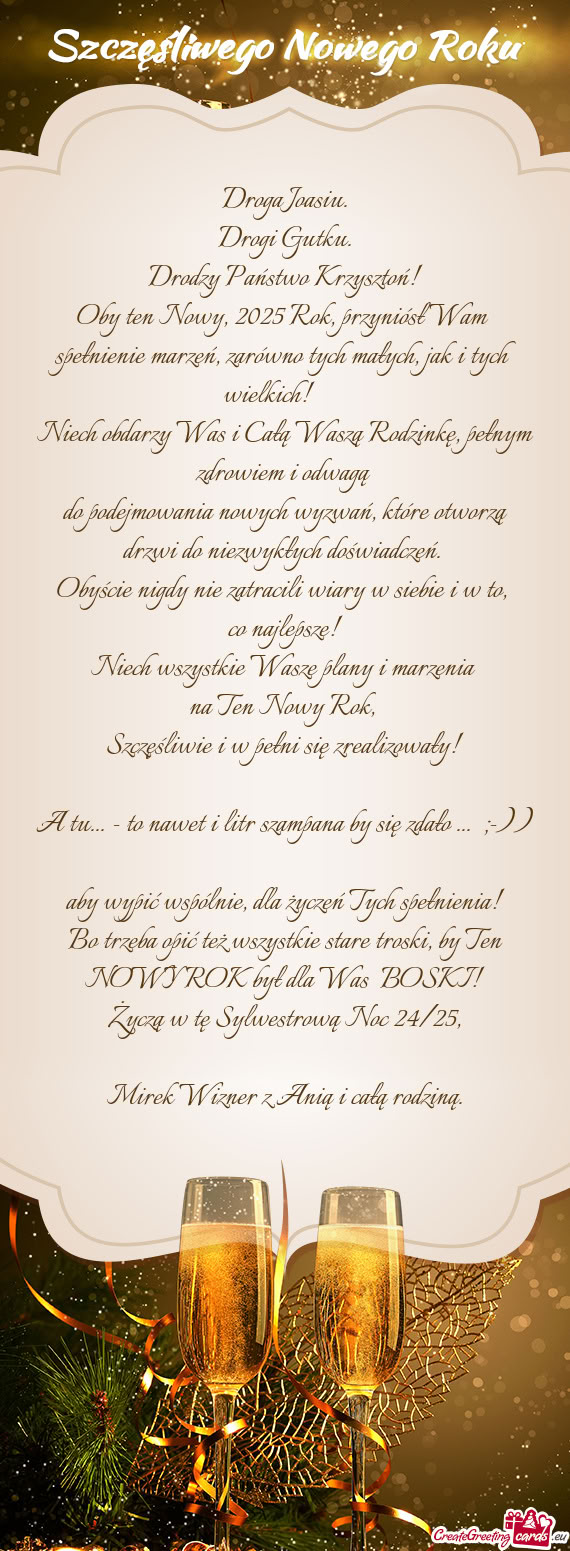 Szczęśliwego Nowego Roku
Droga Joasiu.
Drogi Gutku.
Drodzy Państwo Krzysztoń!
Oby ten Nowy, 2025 Rok, przyniósł Wam
spełnienie marzeń, zarówno tych małych, jak i tych
wielkich!
Niech obdarzy Was i Całą Waszą Rodzinkę, pełnym
zdrowiem i odwagą
do podejmowania nowych wyzwań, które otworzą
drzwi do niezwykłych doświadczeń.
Obyście nigdy nie zatracili wiary w siebie i w to,
co najlepsze!
Niech wszystkie Wasze plany i marzenia
na Ten Nowy Rok,
Szczęśliwie i w pełni się zrealizowały!
A tu... - to nawet i litr szampana by się zdało ... ;-))
aby wypić wspólnie, dla życzeń Tych spełnienia!
Bo trzeba opić też wszystkie stare troski, by Ten
NOWY ROK był dla Was BOSKI!
Życzą w tę Sylwestrową Noc 24/25,
Mirek Wizner z Anią i całą rodziną.
CreateGreetingcards.eu